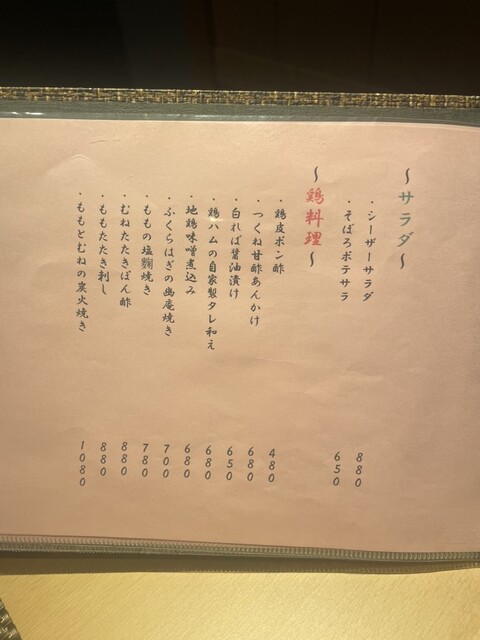 ～サラダ～
・シーザーサラダ 880
・そぼろポテサラ 650
～鶏料理～
・鶏皮ポン酢 480
・つくね甘酢あんかけ 680
・白れば醤油漬け 650
・鶏ハムの自家製タレ和え 680
・地鶏味噌煮込み 680
・ふくらはぎの幽庵焼き 700
・ももの塩麹焼き 780
・むねたたきぽん酢 880
・ももたたき刺し 880
・ももとむねの炭火焼き 1080